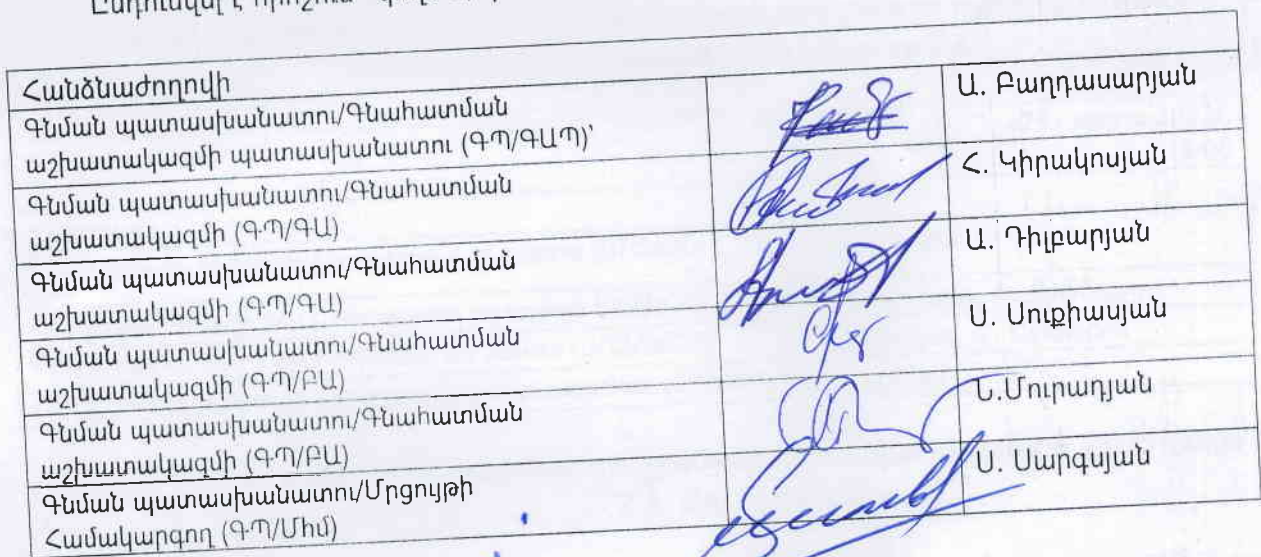 Ընդունվել է որոշում
Հանձնաժողովի
Գնման պատասխանատու/Գնահատման
աշխատակազմի պատասխանատու (ԳՊ/ԳԱՊ)՝
Ա. Բաղդասարյան
Գնման պատասխանատու/Գնահատման
աշխատակազմի (ԳՊ/ԳԱ)
Հ. Կիրակոսյան
Գնման պատասխանատու/Գնահատման
աշխատակազմի (ԳՊ/ԳԱ)
Ա. Դիլբարյան
Գնման պատասխանատու/Գնահատման
աշխատակազմի (ԳՊ/ԲԱ)
Ս. Սուքիասյան
Գնման պատասխանատու/Գնահատման
աշխատակազմի (ԳՊ/ԲԱ)
Ն.Մուրադյան
Գնման պատասխանատու/Մրցույթի
Համակարգող (ԳՊ/Միմ)
Ս. Սարգսյան